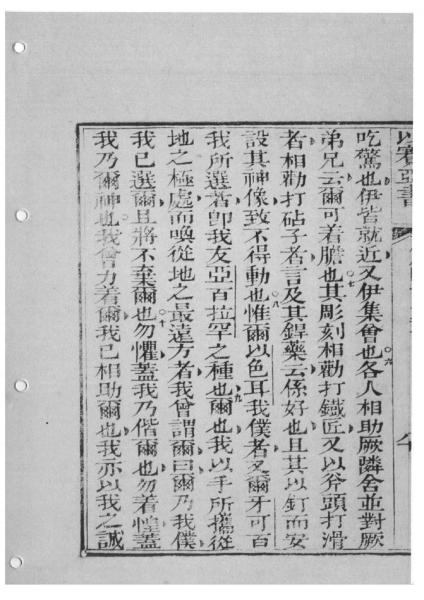 以賽亞書
吃驚也伊皆就近又伊集會也○六各人相助厥隣舍並對厥
弟兄云爾可着膽也○七其彫刻相勸打鐵匠又以斧頭打滑
者相勸打砧子者言及其銲藥云係好也且其以釘而安
設其神像致不得動也○八惟爾以色耳我僕者又爾牙可百
我所選者卽我友亞百拉罕之種也爾也○九我以手所攜從
地之極處而喚從地之最遠方者我曾謂爾曰爾乃我僕
我已選爾且將不棄爾也○十勿懼蓋我乃偕爾也勿着惶蓋
我乃爾神也我曾力着爾我已相助爾也我亦以我之誠